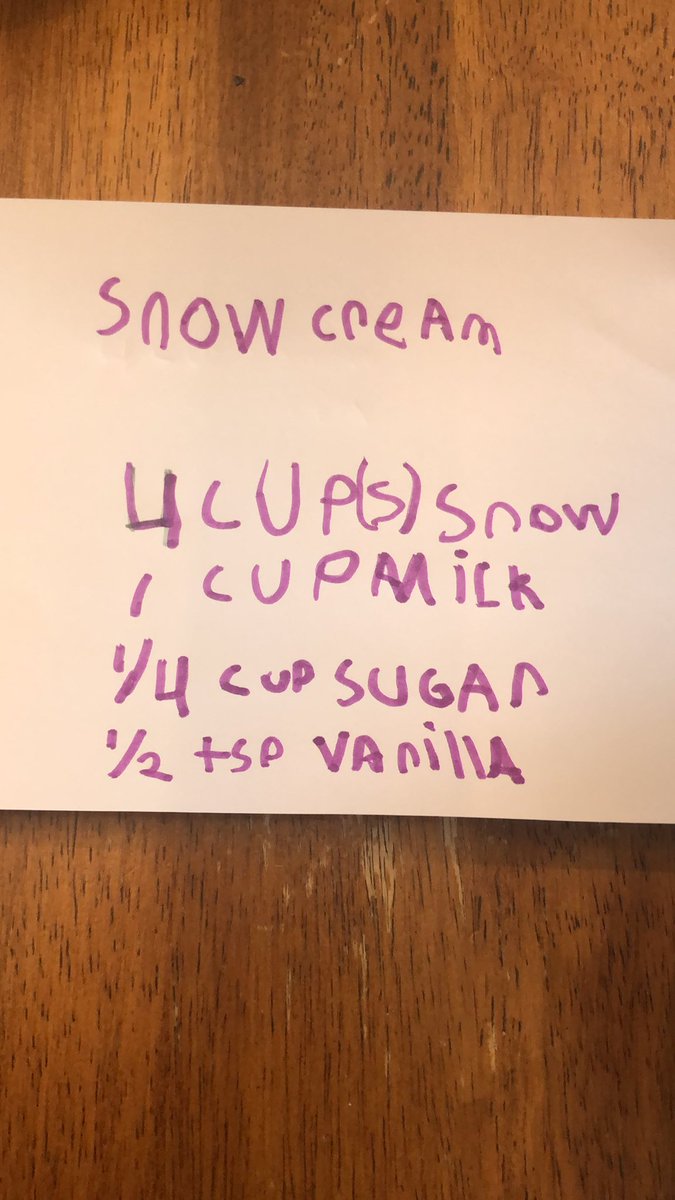 Snow cream
4 CUP(S) Snow
1 CUP MiLK
1/4 CUP SUGAR
1/2 tsp VAnillA